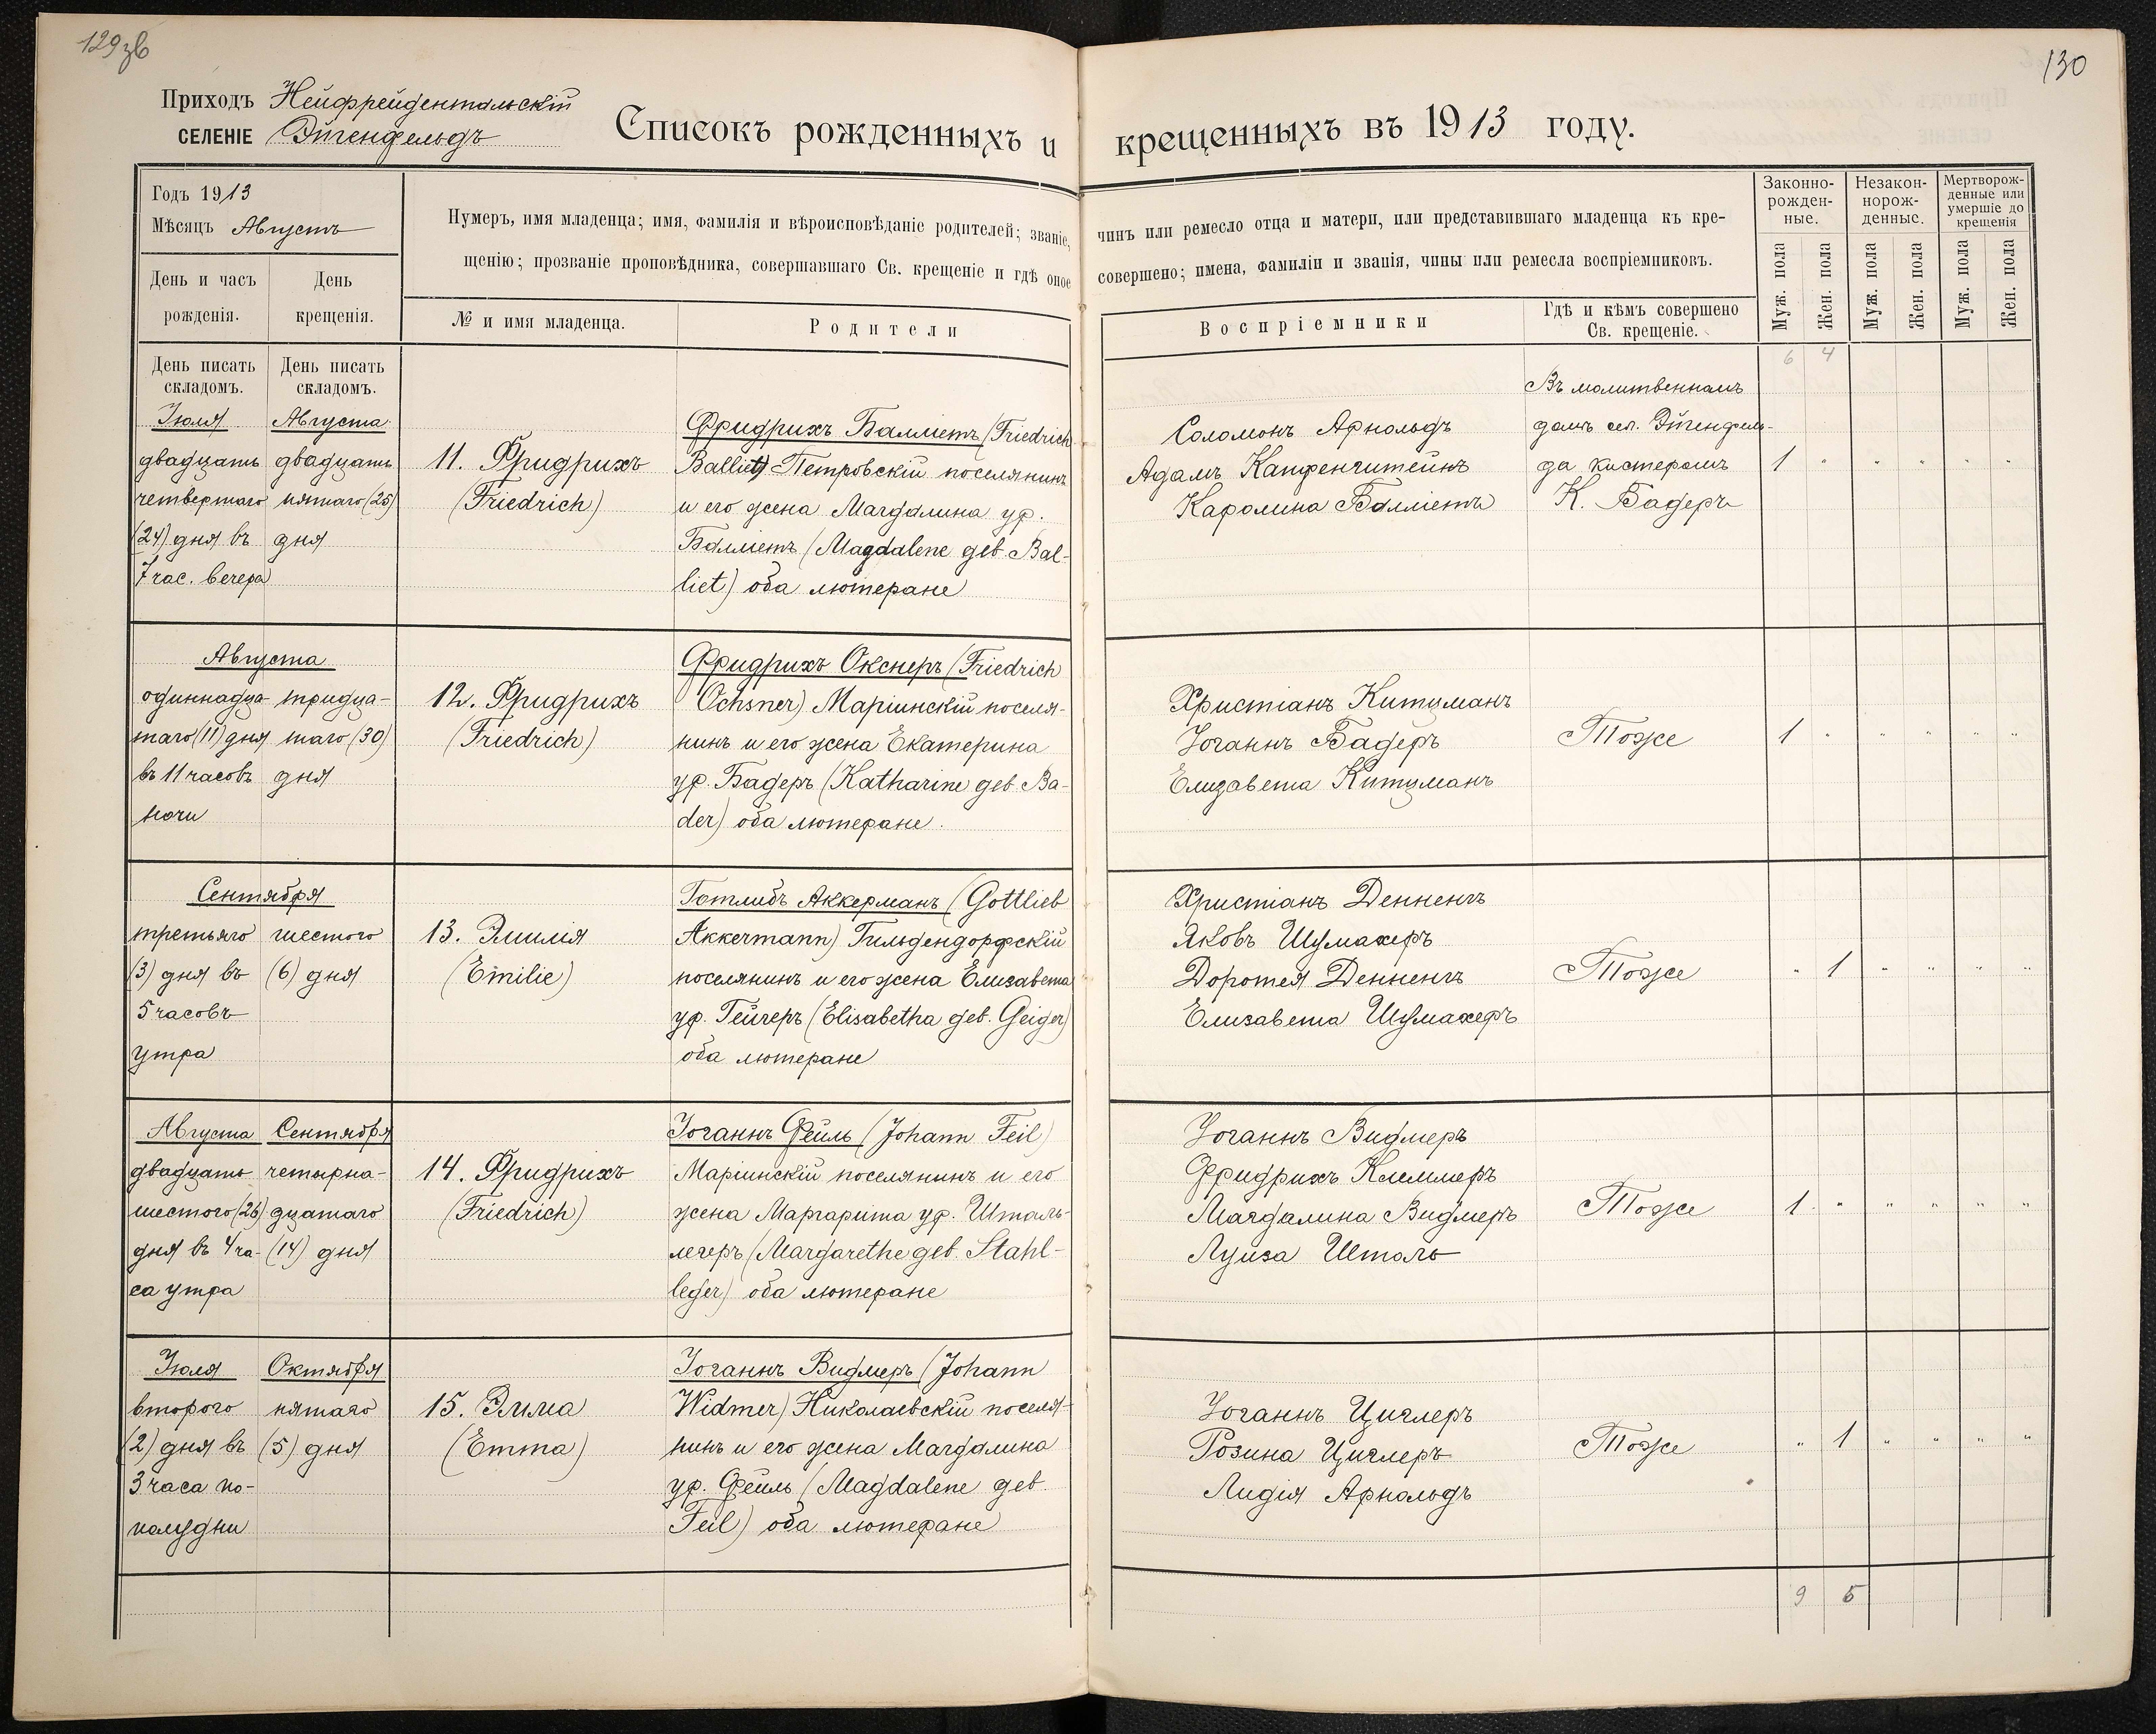 129зв
130
Приходъ Нейфрейдентальскій
СЕЛЕНІЕ Эйгенфельдъ
Списокъ рожденныхъ и крещенныхъ въ 1913 году.
Годъ 1913
Мѣсяцъ Августъ
День и часъ рожденія.
День крещенія.
Нумеръ, имя младенца; имя, фамилія и вѣроисповѣданіе родителей; званіе, чинъ или ремесло отца и матери, или представившаго младенца къ кре-
щенію; прозваніе проповѣдника, совершавшаго Св. крещеніе и гдѣ оное совершено; имена, фамиліи и званія, чины или ремесла воспріемниковъ.
№ и имя младенца.
Родители
Воспріемники
Гдѣ и кѣмъ совершено
Св. крещеніе.
Законно-
рожден-
ные.
Незакон-
норож-
денные.
Мертворож-
денные или
умершіе до
крещенія
Муж. пола
Жен. пола
Муж. пола
Жен. пола
Муж. пола
Жен. пола
День писать
складомъ.
День писать
складомъ.
6 4
Іюля
двадцать
четвертаго
(24) дня въ
7 час. вечера
Августа
двадцать
пятаго (25)
дня
11. Фридрихъ
(Friedrich)
Фридрихъ Балліетъ (Friedrich
Balliet) Петровскій поселянинъ
и его жена Магдалина ур.
Балліетъ (Magdalene geb. Bal-
liet) оба лютеране
Соломонъ Арнольдъ
Адамъ Капфенштейнъ
Каролина Балліетъ
Въ молитвенномъ
домѣ сел. Эйгенфель-
да кистеромъ
К. Бадеръ
1 " " " " "
Августа
одиннадца-
таго (11) дня
въ 11 часовъ
ночи
тридца-
таго (30)
дня
12. Фридрихъ
(Friedrich)
Фридрихъ Окснеръ (Friedrich
Ochsner) Маріинскій поселя-
нинъ и его жена Екатерина
ур. Бадеръ (Katharine geb. Ba-
der) оба лютеране.
Христіанъ Китцманъ
Іоганнъ Бадеръ
Елизавета Китцманъ
Тоже
1 " " " " "
Сентября
третьяго
(3) дня въ
5 часовъ
утра
шестого
(6) дня
13. Эмилія
(Emilie)
Готлибъ Аккерманъ (Gottlieb
Akkermann) Гильдендорфскій
поселянинъ и его жена Елизавета
ур. Гейгеръ (Elisabetha geb. Geiger)
оба лютеране
Христіанъ Денненгъ
Яковъ Шумахеръ
Доротея Денненгъ
Елизавета Шумахеръ
Тоже
" 1 " " " "
Августа
двадцать
шестого (26)
дня въ 4 ча-
са утра
Сентября
четырна-
дцатаго
(14) дня
14. Фридрихъ
(Friedrich)
Іоганнъ Фейль (Johann Feil)
Маріинскій поселянинъ и его
жена Маргарита ур. Шталь-
легеръ (Margarethe geb. Stahl-
leger) оба лютеране
Іоганнъ Видмеръ
Фридрихъ Клеммеръ
Магдалина Видмеръ
Луиза Шталь
Тоже
1 " " " " "
Іюля
второго
(2) дня въ
3 часа по-
полудни
Октября
пятаго
(5) дня
15. Эмма
(Emma)
Іоганнъ Видмеръ (Johann
Widmer) Николаевскій поселя-
нинъ и его жена Магдалина
ур. Фейль (Magdalene geb.
Feil) оба лютеране
Іоганнъ Циглеръ
Розина Циглеръ
Лидія Арнольдъ
Тоже
" 1 " " " "
9 5